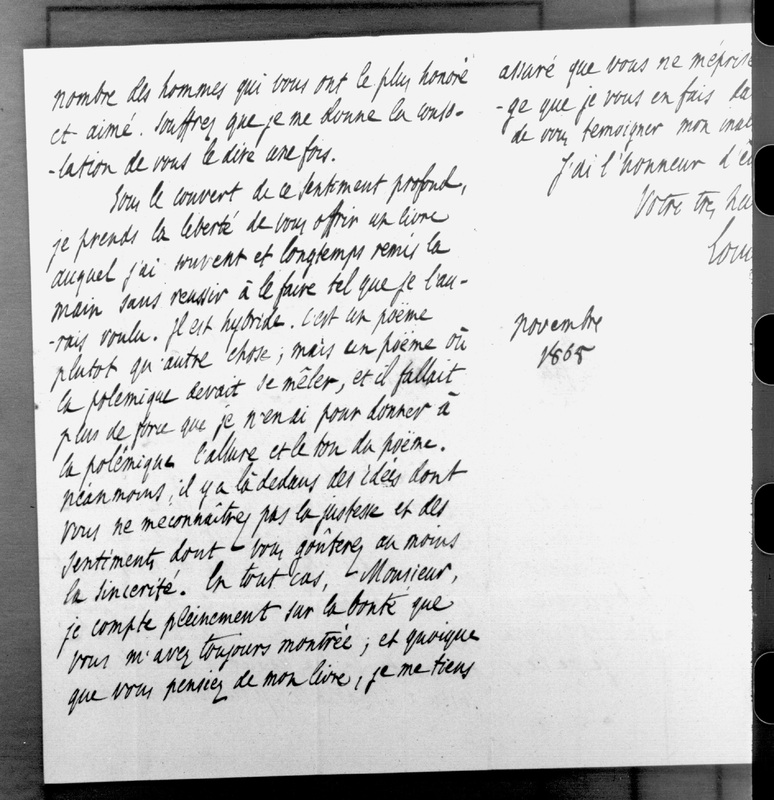 nombre des hommes qui vous ont le plus honoré
et aimé. Souffrez que je me donne la conso-
-lation de vous le dire une fois.
Sous le couvert de ce sentiment profond,
je prends la liberté de vous offrir un livre
auquel j'ai souvent et longtemps remis la
main sans reussir à le faire tel que je l'au-
-rais voulu. Il est hybride. C'est un poëme
plutot qu'autre chose; mais un poëme où
la polemique devait se mêler, et il fallait
plus de force que je n'en ai pour donner à
la polémique l'allure et le ton du poëme.
Néanmoins, il y a là dedans des idées dont
vous ne méconnaîtrez pas la justesse et des
sentiments dont vous goûterez au moins
la sincerité. En tout cas, Monsieur,
je compte pleinement sur la bonté que
vous m'avez toujours montrée; et quoique
que vous pensiez de mon livre, je me tiens
assuré que vous ne mépris
-ge que je vous en fais da
de vous temoigner mon
J'ai l'honneur d'ê
Votre tres hu
Loui
novembre
1868